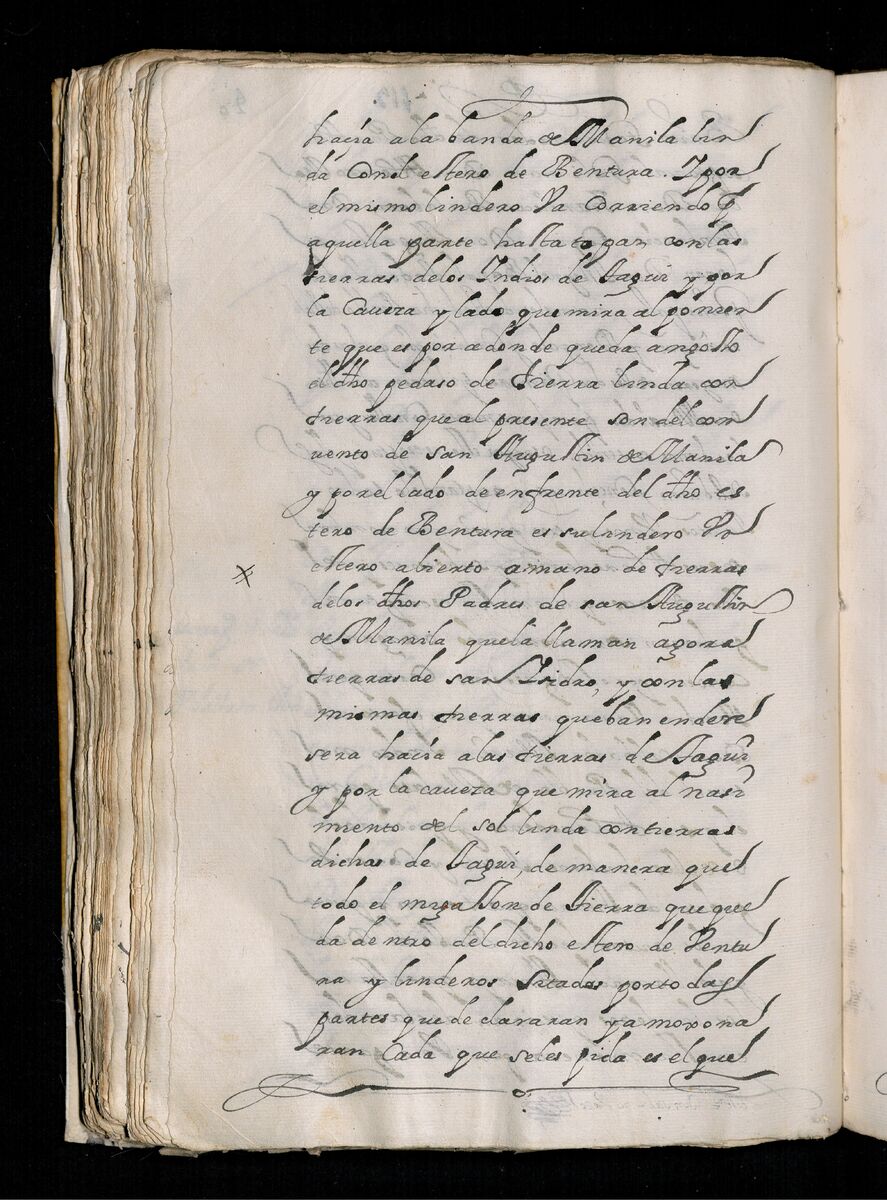 hacia a la banda de Manila lin
da Con el estero de Bentura. Y por
el mismo lindero Va Corriendo p
aquella parte hasta topar con las
tierras delos Indios de Taguì y por
la Caveza y lado que mira al ponien
te que es por adonde queda angosto
el dho pedaso de tierra linda con
tierras que al presente son del con
vento de san Augustin de Manila
y por el lado de enfrente del dho es
tero de Bentura es su lindero Vn
estero abierto amano de tierras
delos dhos Padres de san Augustin
de Manila que la llaman agora
tierras de san Isidro, y con las
mismas tierras que ban endere
sera hacia a las tierras de Taguì
y por la caveza que mira al nasi
miento del sol linda con tierras
dichas de Taguì, de manera que
todo el mogaston de tierra que que
da dentro del dicho estero de Ventu
ra y linderos sitados por todas
partes que declararan y amoxona
ran Cada que seles pida es el que